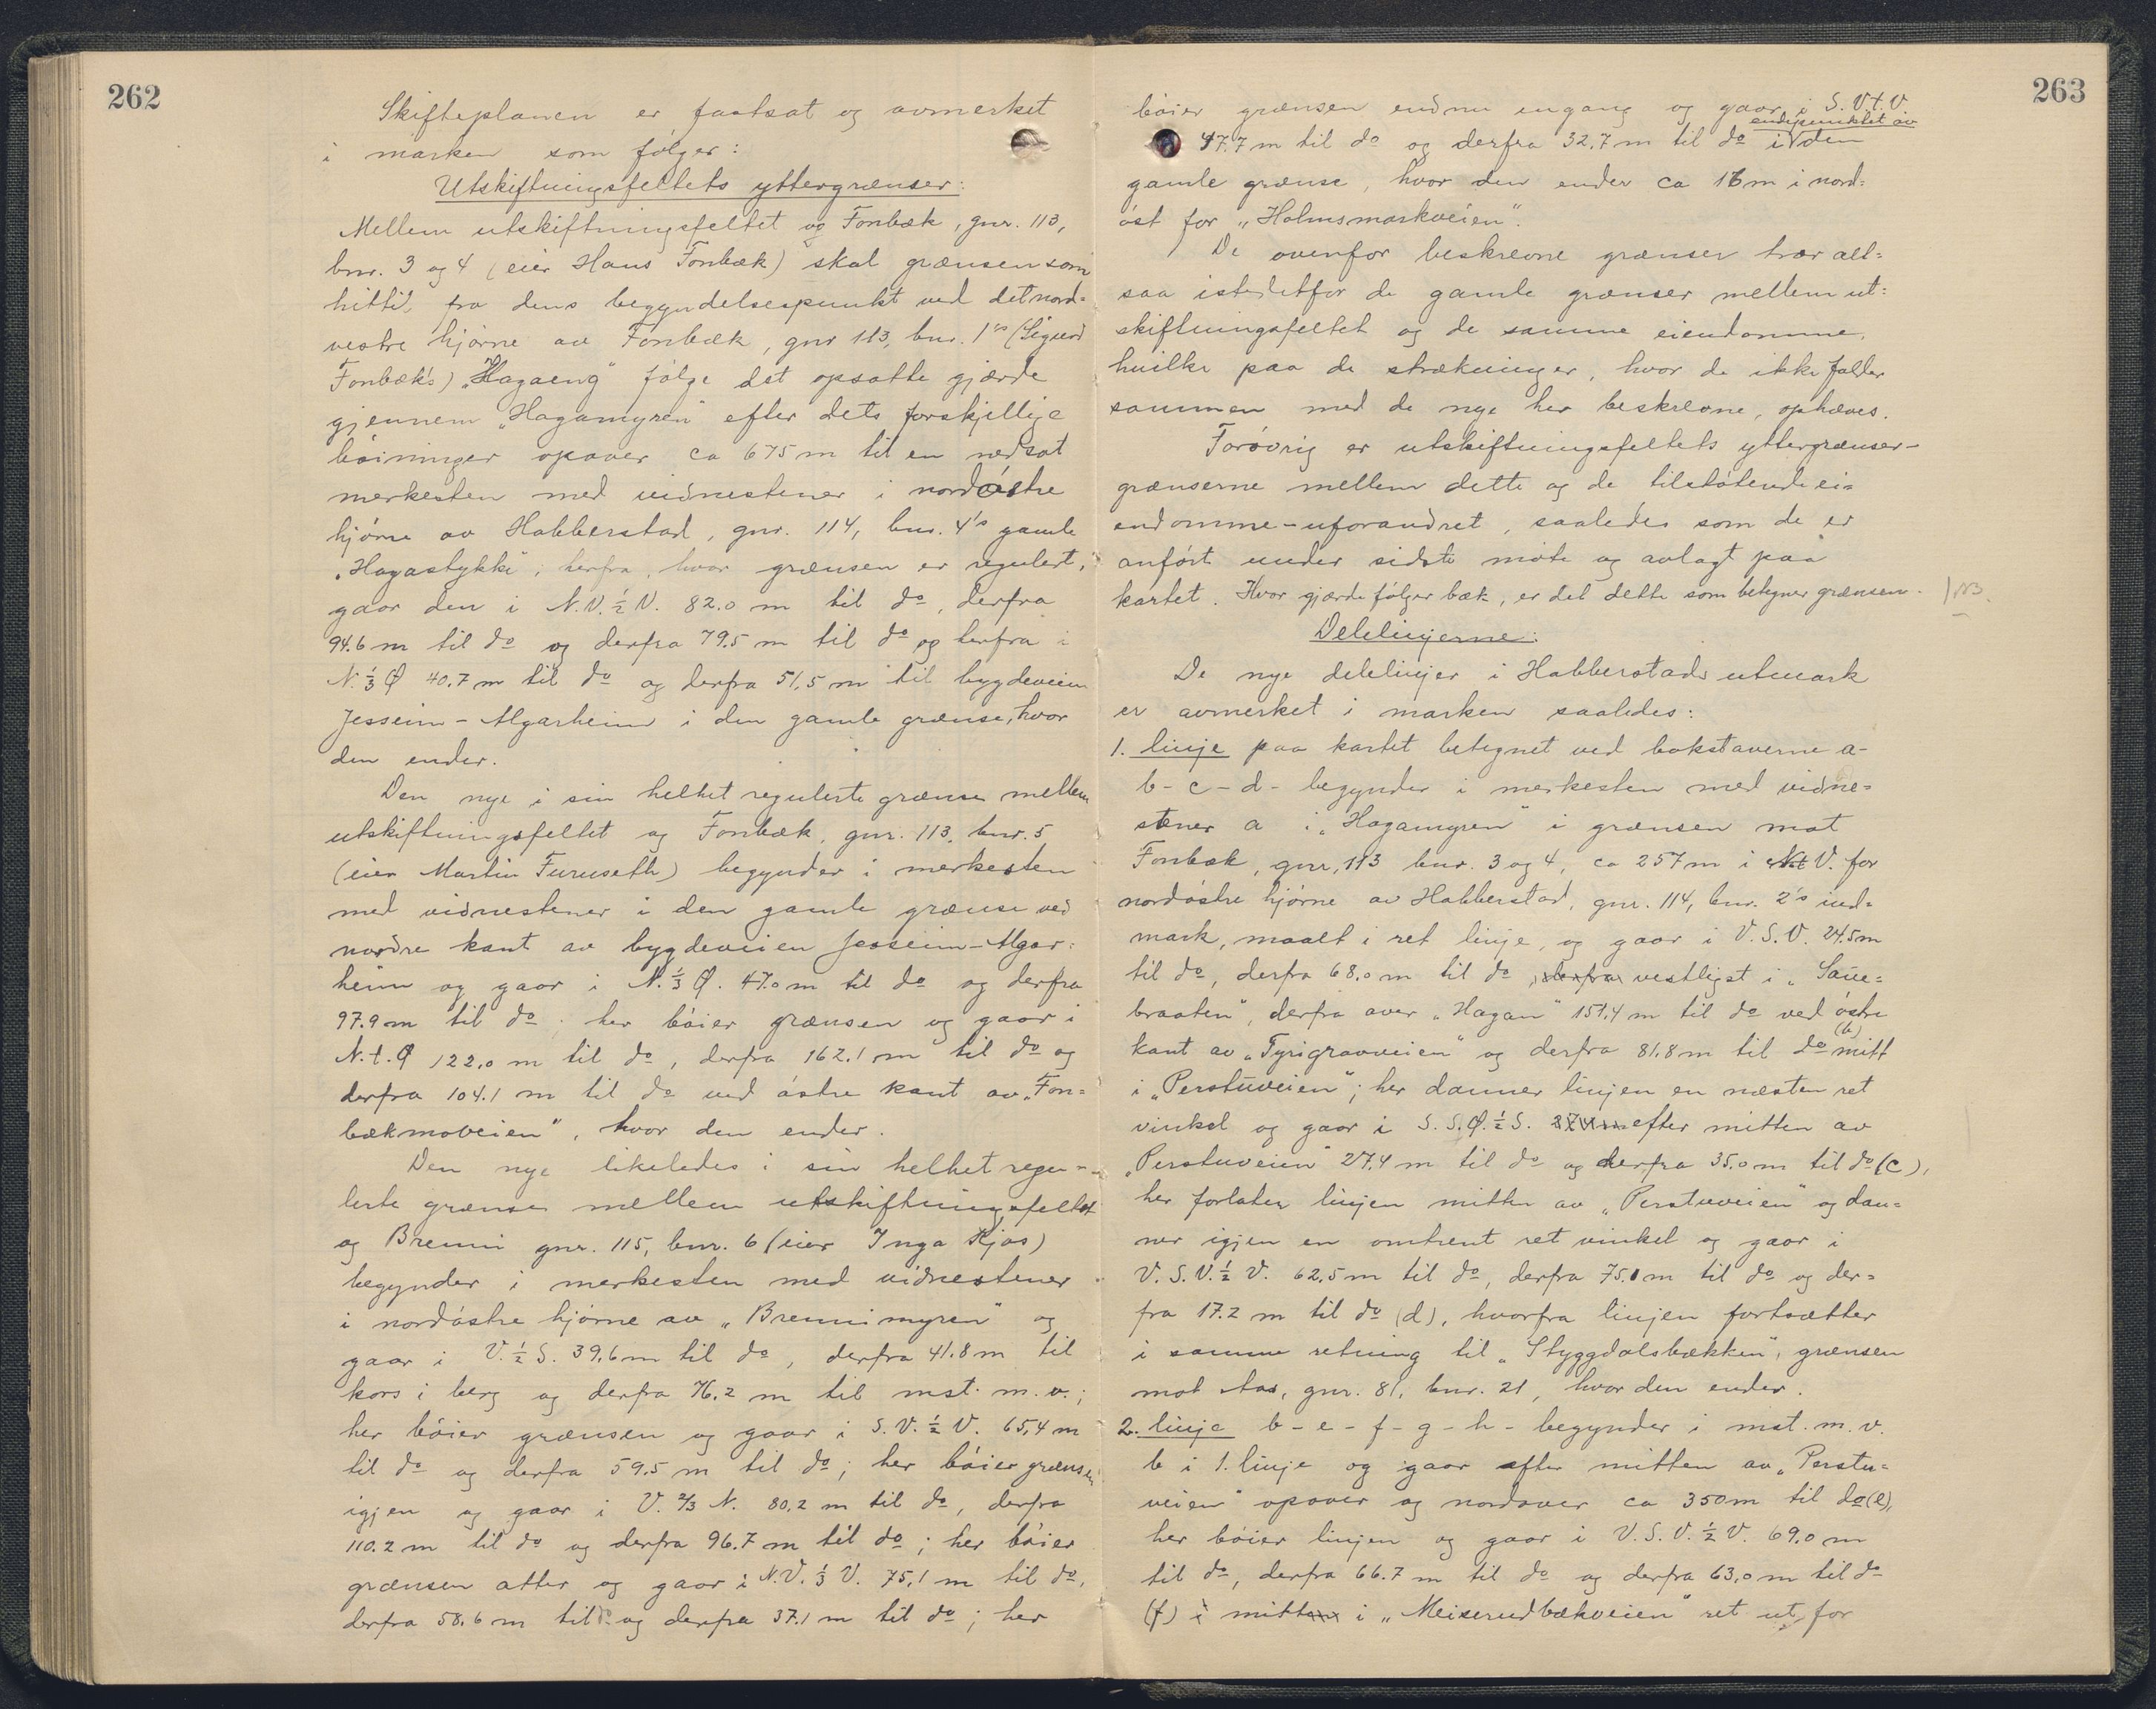 262
Skifteplanen er fastsat og avmerket
i marken som følger:
Utskiftningsfeltets yttergrænser:
Mellem utskiftningsfeltet og Fonbæk, gnr. 113,
bnr. 3 og 4 (eier Hans Fonbæk) skal grænsen som
hittil, fra dens begyndelsespunkt ved det nord=
vestre hjørne av Fonbæk, gnr 113, bnr. 1's (Sigurd
Fonbæk's) „Hagaeng" følge det opsatte gjærde
gjennem „Hagamyren" efter dets forskjellige
bøininger opover ca 675 m til en nedsat
merkesten med vidnestener i nordøstre
hjørne av Habberstad, gnr. 114, bnr. 4's gamle
„Hagastykke", herfra, hvor grænsen er regulert,
gaar den i N.V.½ V. 82.0 m til do, derfra
94.6 m til do og derfra 79.5 m til do og herfra i
N.⅓ Ø 40.7 m til do og derfra 51,5 m til bygdeveien
Jesseim - Algarheim i den gamle grænse, hvor
den ender.
Den nye i sin helhet regulerte grænse mellem
utskiftningsfeltet og Fonbæk, gnr. 113, bnr. 5
(eier Martin Furuseth) begynder i merkesten
med vidnestener i den gamle grænse ved
nordre kant av bygdeveien Jesseim-Algar=
heim og gaar i N.⅓ Ø. 47.0 m til do og derfra
97.9 m til do; her bøier grænsen og gaar i
N.t.Ø 122,0 m til do, derfra 162.1 m til do og
derfra 104.1 m til do ved østre kant av „Fon=
bækmoveien", hvor den ender.
Den nye likeledes i sin helhet regu=
lerte grænse mellem utskiftningsfeltet
og Brenni gnr. 115, bnr. 6 (eier Inga Kjos)
begynder i merkesten med vidnestener
i nordøstre hjørne av „Brennimyren" og
gaar i V.½ S. 39,6 m til do, derfra 41.8 m til
kors i berg og derfra 76.2 m til mst. m. v.;
her bøier grænsen og gaar i S.V.½ V. 65,4 m
til do og derfra 59.5 m til do; her bøier grænsen
igjen og gaar i V.⅔ N. 80,2 m til do, derfra
110.2 m til do og derfra 96.7 m til do; her bøier
grænsen atter og gaar i N.V.⅓ V. 75,1 m til do,
derfra 58,6 m til do og derfra 37.1 m til do; her
263
bøier grænsen endnu engang og gaar i S.V.t.V.
endepunktet av
47.7 m til do og derfra 32.7 m til do i den
gamle grænse, hvor den ender ca 16 m i nord=
øst for „Holmsmarkveien".
De ovenfor beskrevne grænser træer alt=
saa istedetfor de gamle grænser mellem ut=
skiftningsfeltet og de samme eiendomme,
hvilke paa de strækninger, hvor de ikke falder
sammen med de nye her beskrevne, ophæves.
Forøvrig er utskiftningsfeltets yttergrænser-
grænserne mellem dette og de tilstøtende ei=
endomme - uforandret, saaledes som de er
anført under sidste møte og avlagt paa
kartet. Hvor gjærde følger bæk, er det dette som betegner grænsen.
Delelinjerne:
De nye delelinjer i Habberstads utmark
er avmerket i marken saaledes:
1. linje paa kartet betegnet ved bokstaverne a-
b - c - d - begynder i merkesten med vidne=
stener a i „Hagamyren" i grænsen mot
Fonbæk, gnr, 113 bnr. 3 og 4, ca 257 m i V. for
nordøstre hjørne av Habberstad, gnr. 114, bnr. 2's ind=
mark, maalt i ret linje, og gaar i V.S.V. 24.5 m
til do, derfra 68.0 m til do, derfra vestligst i „Saue=
braaten", derfra over „Hagan" 151,4 m til do ved østre
(b)
kant av „Tyrigravveien" og derfra 81.8 m til do mitt
i „Perstuveien"; her danner linjen en næsten ret
vinkel og gaar i S.S.Ø.½ S. efter mitten av
„Perstuveien" 27.4 m til do og derfra 35.0 m til do (c),
her forlater linjen mitten av „Perstuveien" og dan=
ner igjen en omtrent ret vinkel og gaar i
V.S.V.½ V. 62.5 m til do, derfra 75.1 m til do og der=
fra 17.2 m til do (d), hvorfra linjen fortsætter
i samme retning til „Styggdalsbækken", grænsen
mot Aas, gnr. 81, bnr. 21, hvor den ender.
2. linje b - e - f - g - h - begynder i mst. m. v.
b i 1. linje og gaar efter mitten av „Perstu=
veien" opover og nordover ca 350 m til do (e),
her bøier linjen og gaar i V.S.V.½ V. 69,0 m
til do, derfra 66.7 m til do og derfra 63,0 m til do
(f) i mitten i „Meiserudbækveien" ret ut for